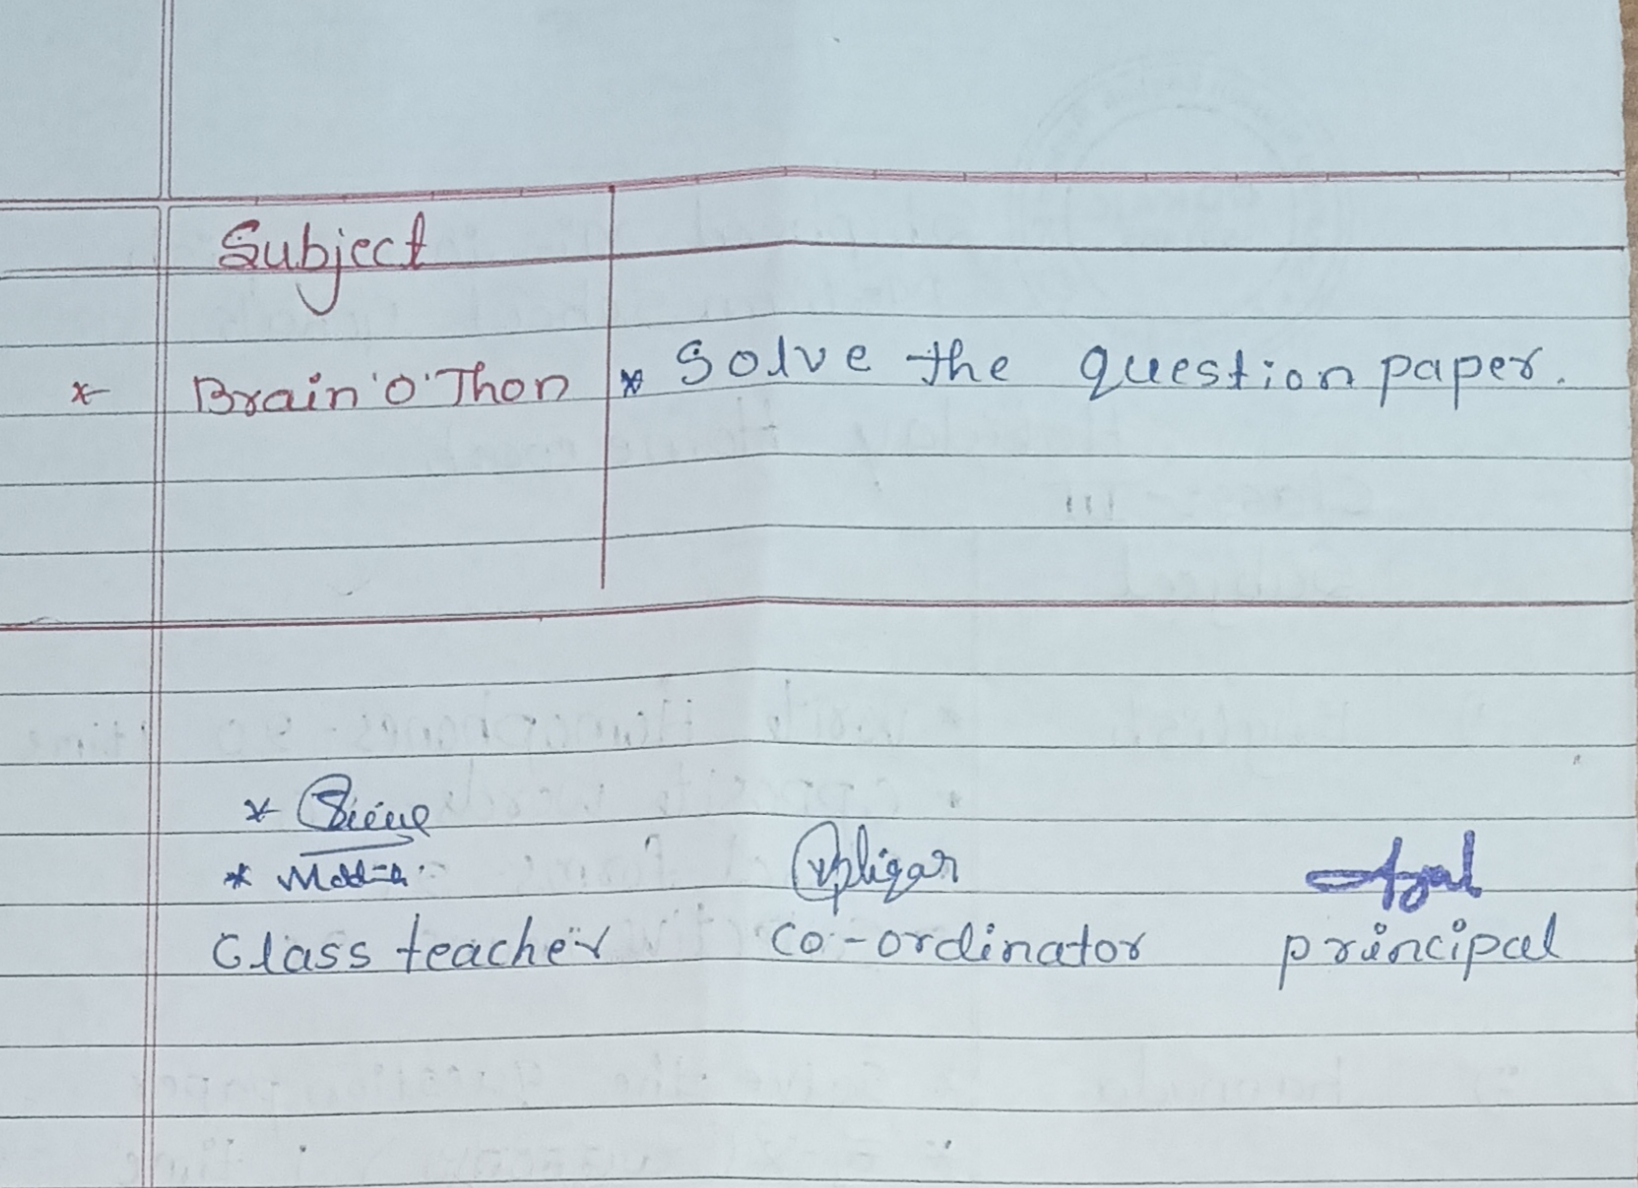 Subject
* Brain 'O' Thon * Solve the question paper.
*
*
Class teacher Co-ordinator principal